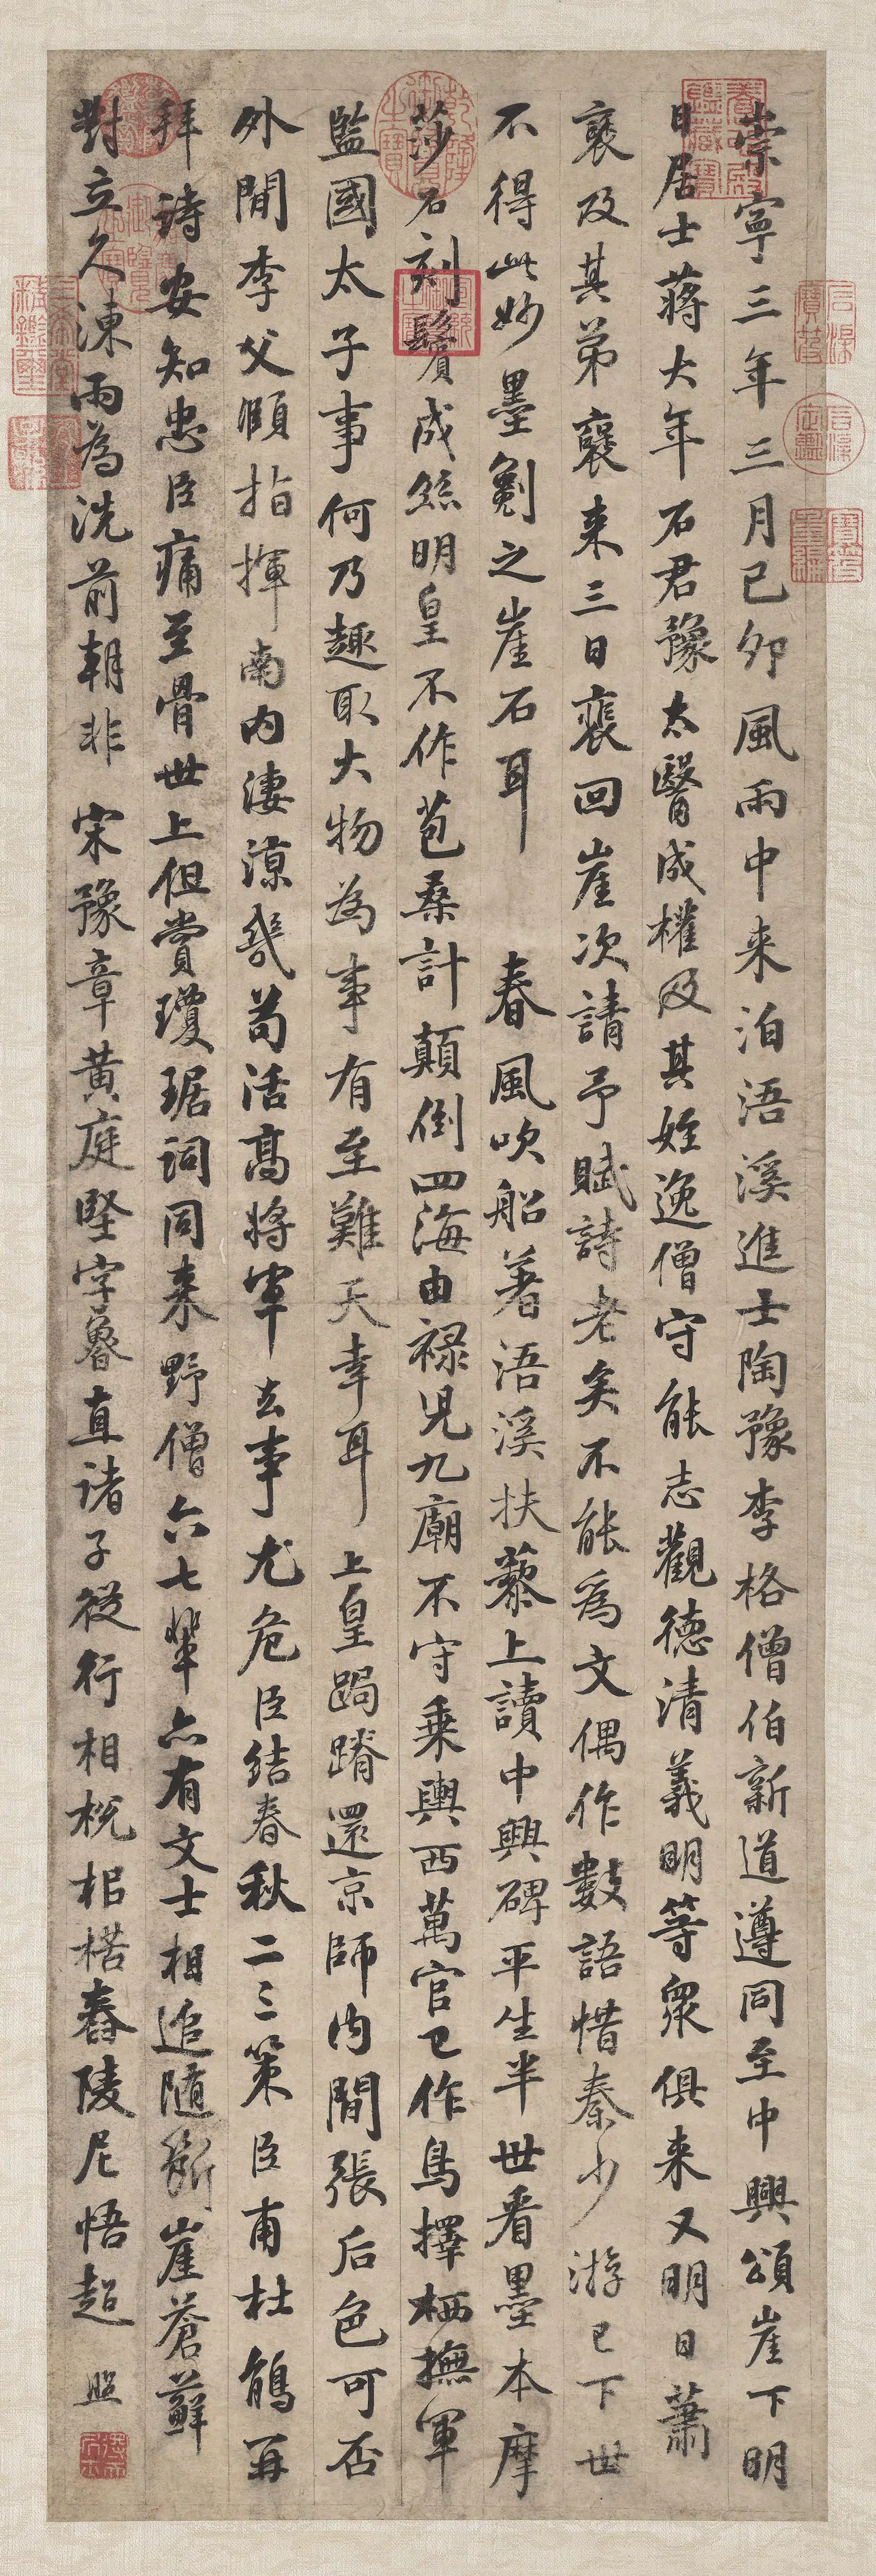 崇寧三年三月己卯風雨中来泊浯溪進士陶豫李格僧伯新道遵同至中興頌崖下明
日居士蔣大年石君豫太醫成權及其姪逸僧守能志觀德清義明等眾俱来又明日蕭
襃及其弟襃来三日裴回崖次請予賦詩老矣不能為文偶作數語惜秦少游已下世
不得此妙墨劖之崖石耳 春風吹船著浯溪扶藜上讀中興碑平生半世看墨本摩
莎石刻鬢成絲明皇不作苞桑計顛倒四海由禄兒九廟不守乗輿西萬官已作鳥擇栖撫軍
監國太子事何乃趣取大物為事有至難天幸耳上皇跼蹐還京師内間張后色可否
外間李父頤指揮南内淒涼幾苟活高將軍去事尤危臣結春秋二三策臣甫杜鵑再
拜詩安知忠臣痛至骨世上但賞瓊琚詞同来野僧六七輩亦有文士相追随斷崖蒼蘚
對立久涷雨為洗前朝非 宋豫章黄庭堅字魯直諸子從行相梲相楛舂陵尼悟超